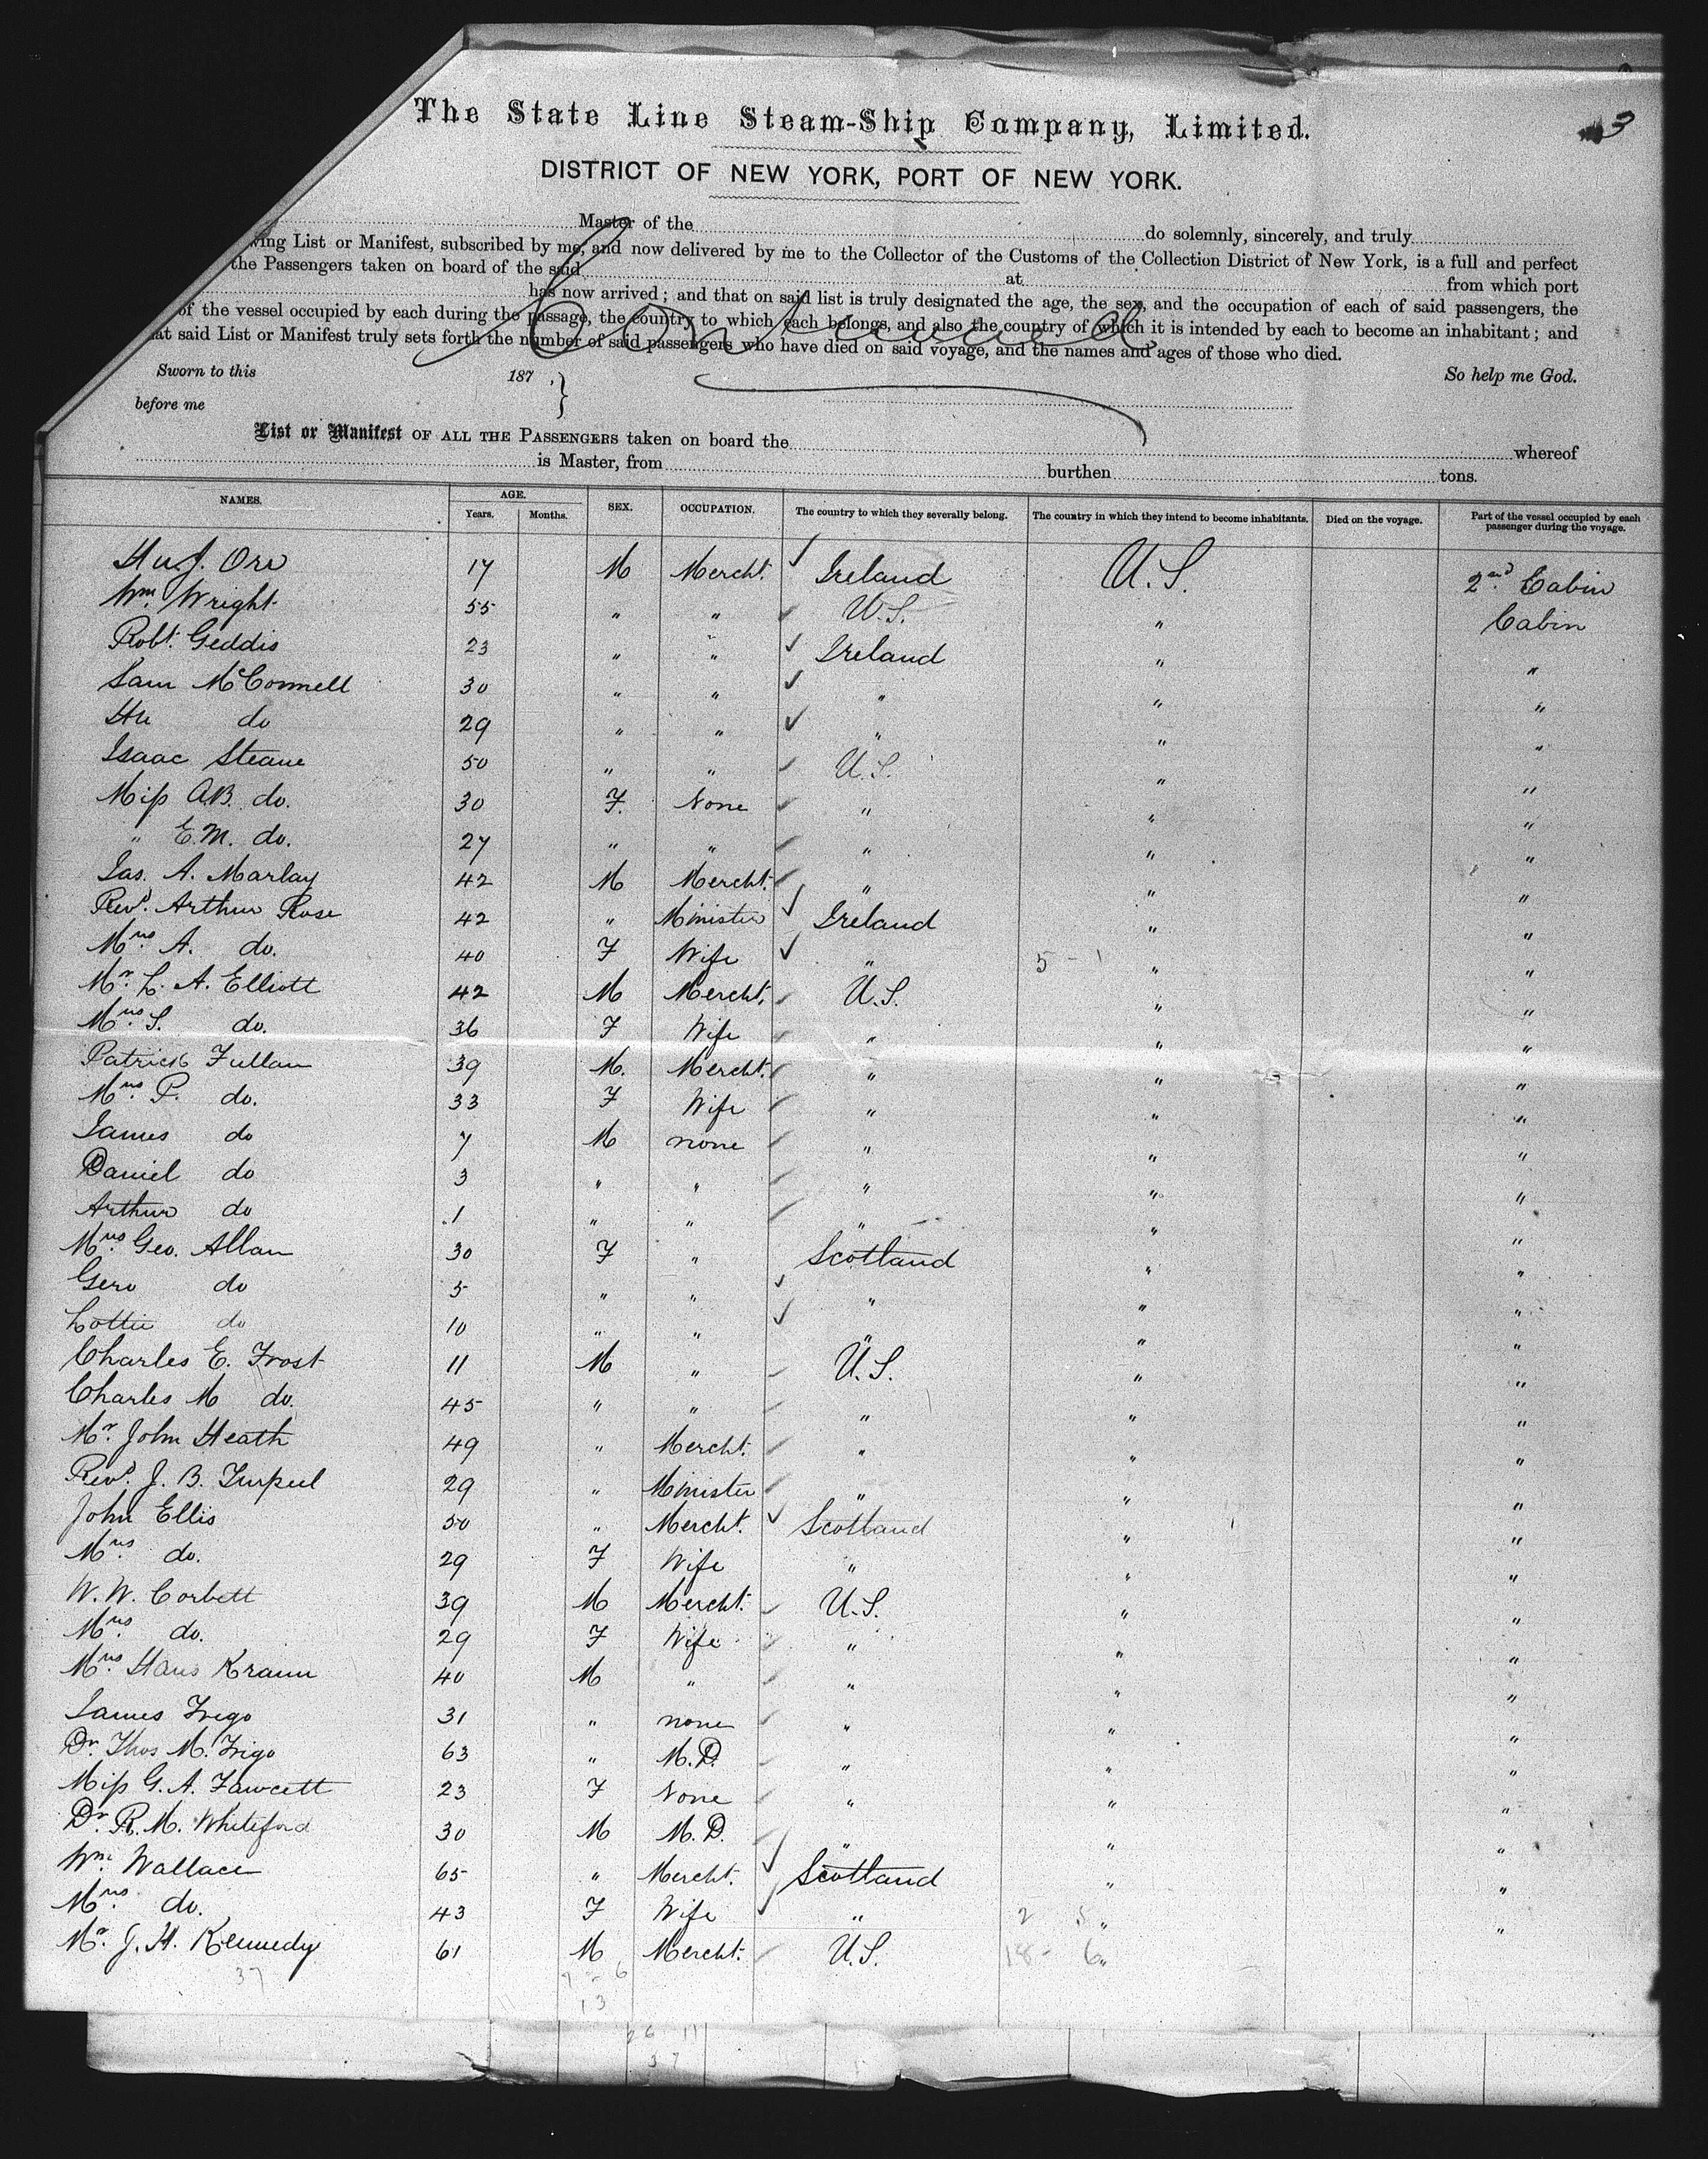 3
The State Line Steam-Ship Company, Limited.
DISTRICT OF NEW YORK, PORT OF NEW YORK.
Master of the do solemnly, sincerely, and truly
wing List or Manifest, subscribed by me, and now delivered by me to the Collector of the Customs of the Collection District of New York, is a full and perfect
the Passengers taken on board of the said at from which port
has now arrived; and that on said list is truly designated the age, the sex, and the occupation of each of said passengers, the
of the vessel occupied by each during the passage, the country to which each belongs, and also the country of which it is intended by each to become an inhabitant; and
at said List or Manifest truly sets forth the number of said passengers who have died on said voyage, and the names and ages of those who died.
Continued
Sworn to this 187 , } So help me God.
before me
List or Manifest OF ALL THE PASSENGERS taken on board the whereof
is Master, from burthen tons.
NAMES. AGE. Years. Months. SEX. OCCUPATION. The country to which they severally belong. The country in which they intend to become inhabitants. Died on the voyage. Part of the vessel occupied by each passenger during the voyage.
Hu J. Orr 17 M Mercht. Ireland U.S. 2nd Cabin
Wm Wright 55 " " U.S. " Cabin
Robt. Geddis 23 " " Ireland " "
Sam McConnell 30 " " " " "
Hu do 29 " " " " "
Isaac Steane 50 " " U.S. " "
Miss A.B. do. 30 F. None " " "
" E.M. do. 27 " " " " "
Jas. A. Marlay 42 M Mercht. " " "
Revd. Arthur Rose 42 " Minister Ireland " "
Mrs A. do. 40 F Wife " 5 - 1 " "
Mr. L. A. Elliott 42 M Mercht. U.S. " "
Mrs S. do. 36 F Wife " " "
Patrick Fullam 39 M. Mercht. " " "
Mrs. P. do. 33 F Wife " " "
James do 7 M none " " "
Daniel do 3 " " " " "
Arthur do 1 " " " " "
Mrs. Geo. Allan 30 F " Scotland " "
Gero do 5 " " " " "
Lottie do 10 " " " " "
Charles E. Frost 11 M " U.S. " "
Charles M do. 45 " " " " "
Mr. John Heath 49 " Mercht. " " "
Revd. J. B. 29 " Minister " " "
John Ellis 50 " Mercht. Scotland " "
Mrs. do. 29 F Wife " " "
W. W. Corbett 39 M Mercht. U.S. " "
Mrs. do. 29 F Wife " " "
Mrs. Hans Kramm 40 M " " " "
James Trego 31 " none " " "
Dr. Thos M. Trigo 63 " M.D. " " "
Miss G. A. Fawcett 23 F None " " "
Dr. R. M. Whiteford 30 M M.D. " " "
Wm. Wallace 65 " Mercht. Scotland " "
Mrs. do. 43 F Wife " 2 5 " "
Mr. J. H. Kennedy 61 M Mercht. U.S. 18 - 6 "
37 7 - 6
11 13
26 11
37